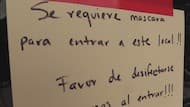 Se requiere mascara
para entrar a este local!!
Favor de desifectarse
al entrar!!!